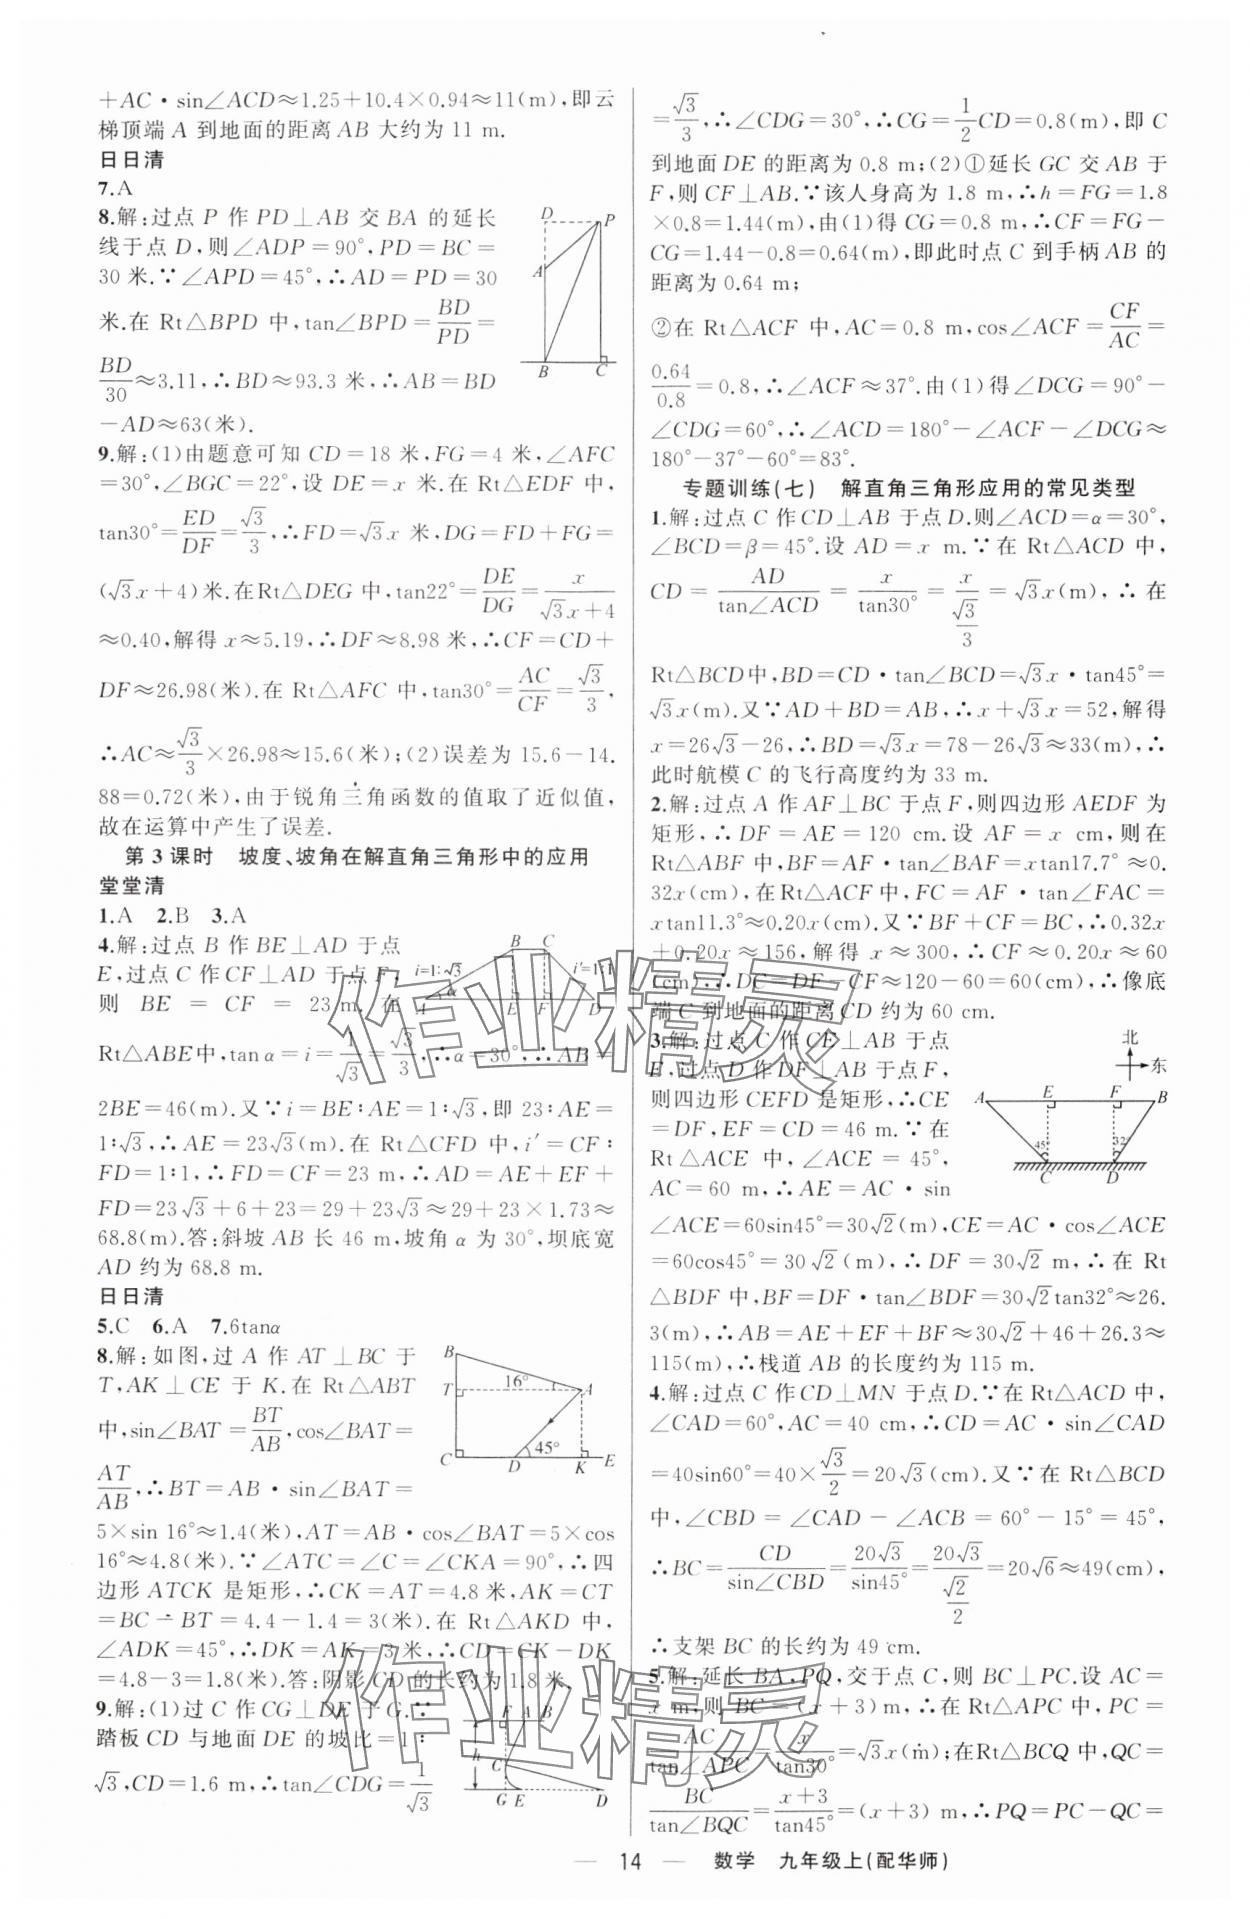 +AC·sin∠ACD≈1.25+10.4×0.94≈11(m),即云
梯顶端 A 到地面的距离 AB 大约为 11 m.
日日清
7.A
8.解:过点 P 作 PD⊥AB 交 BA 的延长
线于点 D,则∠ADP=90°,PD=BC=
30 米.∵∠APD=45°,∴AD=PD=30
米.在 Rt△BPD 中,tan∠BPD=BD/PD=
BD/30≈3.11,∴BD≈93.3 米,∴AB=BD
-AD≈63(米).
D P A B C
9.解:(1)由题意可知 CD=18 米,FG=4 米,∠AFC
=30°,∠BGC=22°,设 DE=x 米.在 Rt△EDF 中,
tan30°=ED/DF=√3/3,∴FD=√3x 米,DG=FD+FG=
(√3x+4)米.在Rt△DEG 中,tan22°=DE/DG=x/(√3x+4)
≈0.40,解得 x≈5.19,∴DF≈8.98 米,∴CF=CD+
DF≈26.98(米).在 Rt△AFC 中,tan30°=AC/CF=√3/3,
∴AC≈√3/3×26.98≈15.6(米);(2)误差为 15.6-14.
88=0.72(米),由于锐角三角函数的值取了近似值,
故在运算中产生了误差.
第 3 课时 坡度、坡角在解直角三角形中的应用
堂堂清
1.A 2.B 3.A
4.解:过点 B 作 BE⊥AD 于点
E,过点 C 作 CF⊥AD 于点 F,
则 BE = CF = 23 m. 在
B C i=1:√3 i′=1:1 α A E F D
Rt△ABE中,tanα=i=1/√3=√3/3,∴α=30°,∴AB=
2BE=46(m).又∵i=BE:AE=1:√3,即 23:AE=
1:√3,∴AE=23√3(m).在 Rt△CFD 中,i′=CF:
FD=1:1,∴FD=CF=23 m,∴AD=AE+EF+
FD=23√3+6+23=29+23√3≈29+23×1.73≈
68.8(m).答:斜坡 AB 长 46 m,坡角 α 为 30°,坝底宽
AD 约为 68.8 m.
日日清
5.C 6.A 7.6tanα
8.解:如图,过 A 作 AT⊥BC 于
T,AK⊥CE 于 K.在 Rt△ABT
中,sin∠BAT=BT/AB,cos∠BAT=
AT/AB,∴BT=AB·sin∠BAT=
B T 16° A 45° C D K E
5×sin 16°≈1.4(米),AT=AB·cos∠BAT=5×cos
16°≈4.8(米).∵∠ATC=∠C=∠CKA=90°,∴四
边形 ATCK 是矩形,∴CK=AT=4.8 米,AK=CT
=BC-BT=4.4-1.4=3(米).在 Rt△AKD 中,
∠ADK=45°,∴DK=AK=3 米,∴CD=CK-DK
=4.8-3=1.8(米).答:阴影 CD 的长约为 1.8 米.
9.解:(1)过 C 作 CG⊥DE 于 G.∵
踏板 CD 与地面 DE 的坡比=1:
√3,CD=1.6 m,∴tan∠CDG=1/√3
F A B h C G E D
=√3/3,∴∠CDG=30°,∴CG=1/2CD=0.8(m),即 C
到地面 DE 的距离为 0.8 m;(2)①延长 GC 交 AB 于
F,则 CF⊥AB.∵该人身高为 1.8 m,∴h=FG=1.8
×0.8=1.44(m),由(1)得 CG=0.8 m,∴CF=FG-
CG=1.44-0.8=0.64(m),即此时点 C 到手柄 AB 的
距离为 0.64 m;
②在 Rt△ACF 中,AC=0.8 m,cos∠ACF=CF/AC=
0.64/0.8=0.8,∴∠ACF≈37°.由(1)得∠DCG=90°-
∠CDG=60°,∴∠ACD=180°-∠ACF-∠DCG≈
180°-37°-60°=83°.
专题训练(七) 解直角三角形应用的常见类型
1.解:过点 C 作CD⊥AB 于点 D.则∠ACD=α=30°,
∠BCD=β=45°.设 AD=x m.∵在 Rt△ACD 中,
CD=AD/tan∠ACD=x/tan30°=x/(√3/3)=√3x(m),∴在
Rt△BCD中,BD=CD·tan∠BCD=√3x·tan45°=
√3x(m).又∵AD+BD=AB,∴x+√3x=52,解得
x=26√3-26,∴BD=√3x=78-26√3≈33(m),∴
此时航模 C 的飞行高度约为 33 m.
2.解:过点 A 作 AF⊥BC 于点 F,则四边形 AEDF 为
矩形,∴DF=AE=120 cm.设 AF=x cm,则在
Rt△ABF 中,BF=AF·tan∠BAF=xtan17.7°≈0.
32x(cm),在Rt△ACF 中,FC=AF·tan∠FAC=
xtan11.3°≈0.20x(cm).又∵BF+CF=BC,∴0.32x
+0.20x≈156,解得 x≈300,∴CF≈0.20x≈60
(cm),∴DC=DF-CF≈120-60=60(cm),∴像底
端 C 到地面的距离CD 约为 60 cm.
3.解:过点 C 作 CE⊥AB 于点
E,过点 D 作 DF⊥AB 于点F,
则四边形 CEFD 是矩形,∴CE
=DF,EF=CD=46 m.∵在
Rt△ACE 中,∠ACE=45°,
AC=60 m,∴AE=AC·sin
北 东 A E F B 45° 32° C D
∠ACE=60sin45°=30√2(m),CE=AC·cos∠ACE
=60cos45°=30√2(m),∴DF=30√2 m,∴在 Rt
△BDF 中,BF=DF·tan∠BDF=30√2tan32°≈26.
3(m),∴AB=AE+EF+BF≈30√2+46+26.3≈
115(m),∴栈道 AB 的长度约为 115 m.
4.解:过点 C 作CD⊥MN 于点D.∵在 Rt△ACD 中,
∠CAD=60°,AC=40 cm,∴CD=AC·sin∠CAD
=40sin60°=40×√3/2=20√3(cm).又∵在 Rt△BCD
中,∠CBD=∠CAD-∠ACB=60°-15°=45°,
∴BC=CD/sin∠CBD=20√3/sin45°=20√3/(√2/2)=20√6≈49(cm),
∴支架 BC 的长约为 49 cm.
5.解:延长 BA,PQ,交于点 C,则 BC⊥PC.设 AC=
x m,则 BC=(x+3)m,∴在 Rt△APC 中,PC=
AC/tan∠APC=x/tan30°=√3x(m);在Rt△BCQ 中,QC=
BC/tan∠BQC=(x+3)/tan45°=(x+3) m,∴PQ=PC-QC=
作业精灵
作业精灵
14 数学 九年级上(配华师)